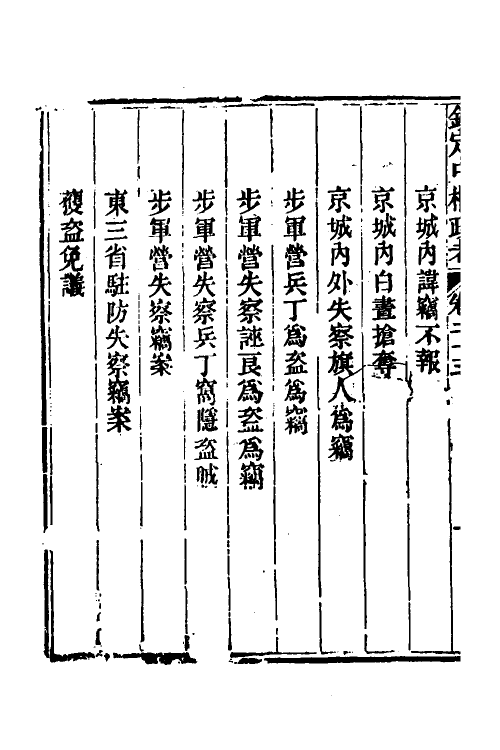 欽定中樞政考 卷二十三
京城內諱竊不報
京城內白晝搶奪
京城內外失察旗人為竊
步軍營兵丁為盜為竊
步軍營失察誣良為盜為竊
步軍營失察兵丁窩隱盜賊
步軍營失察竊案
東三省駐防失察竊案
獲盜免議